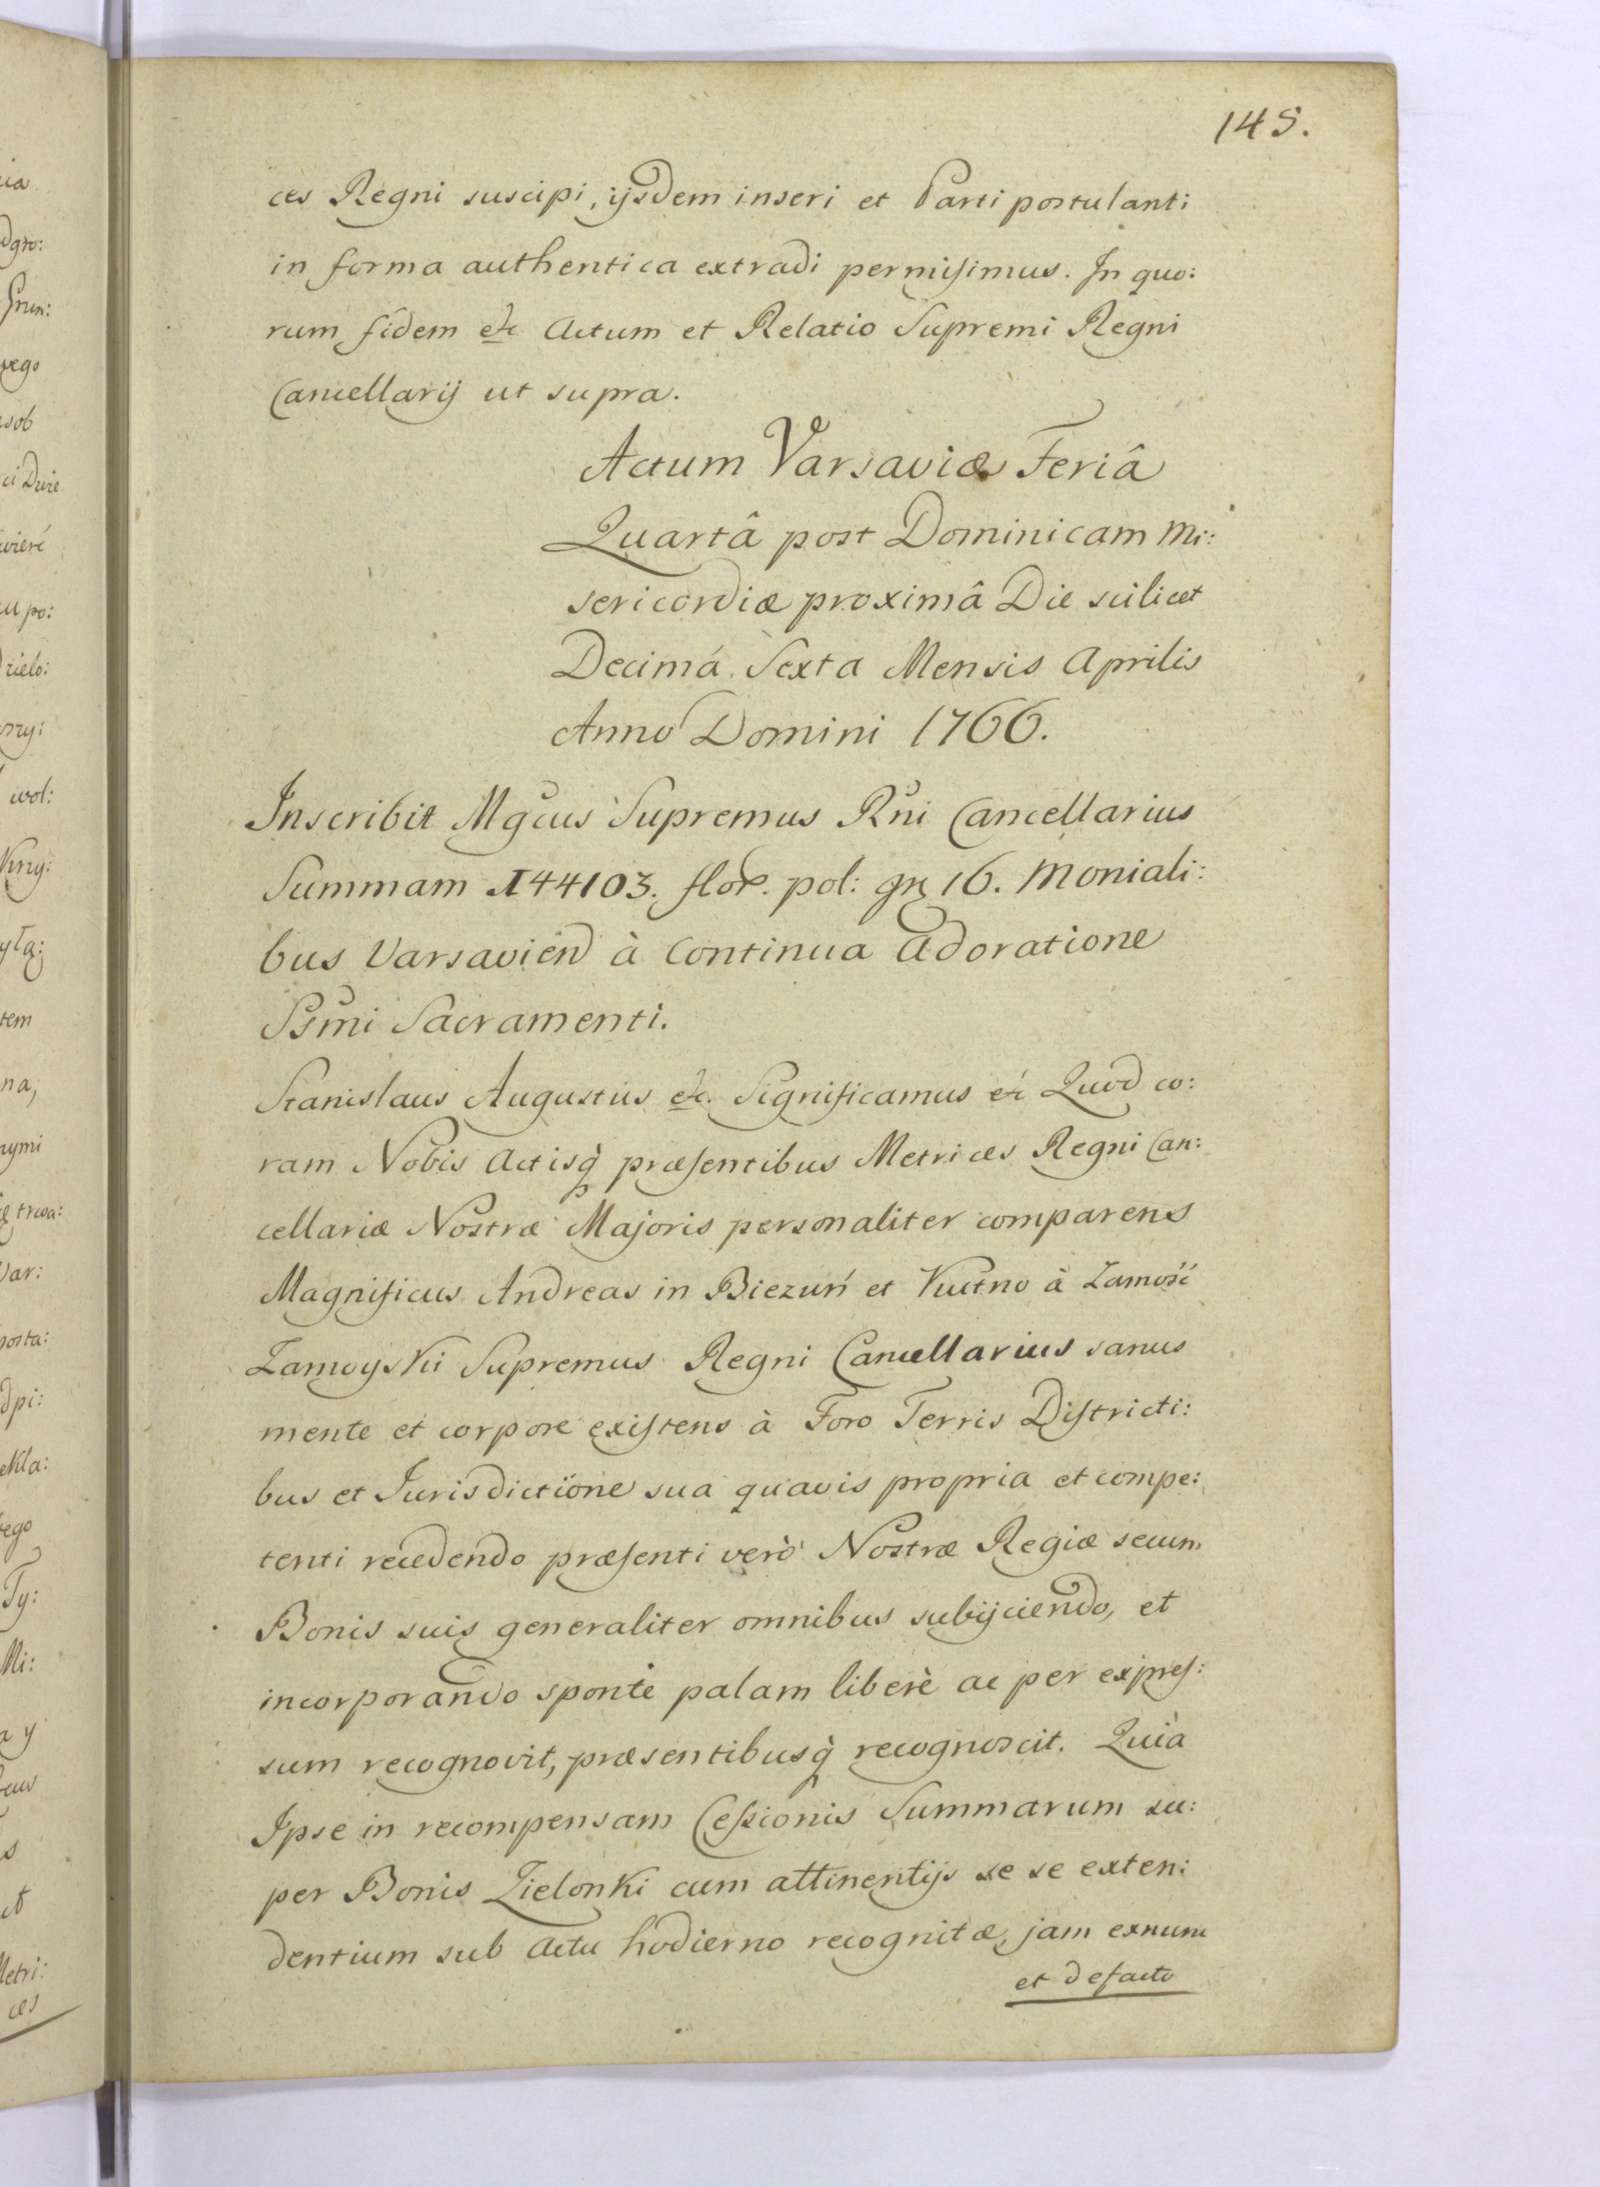 145.
ces Regni suscipi, ijsdem inseri et Parti postulanti
in forma authentica extradi permisimus. In quo:
rum fidem etc Actum et Relatio Supremi Regni
Cancellarij ut supra.
Actum Varsaviæ Feriâ
Quartâ post Dominicam Mi:
sericordiæ proximâ Die scilicet
Decimá Sexta Mensis Aprilis
Anno Domini 1766.
Inscribit Mgcus Supremus Rni Cancellarius
Summam 144103. flor. pol: gr 16. Moniali:
bus Varsavien à Continua Adoratione
Ssmi Sacramenti.
Stanislaus Augustus etc. Significamus etc Quod co:
ram Nobis Actisq̀ præsentibus Metrices Regni Can:
cellariæ Nostræ Majoris personaliter comparens
Magnificus Andreas in Biezuń et Kutno à Zamość
Zamoyskii Supremus Regni Cancellarius sanus
mente et corpore existens à Foro Terris Districti:
bus et Jurisdictione sua quavis propria et compe:
tenti recedendo præsenti verò Nostræ Regiæ secum
Bonis suis generaliter omnibus subijciendo, et
incorporando sponte palam liberè ac per expres:
sum recognovit, præsentibusq̀ recognoscit. Quia
Ipse in recompensam Cessionis Summarum su:
per Bonis Zielonki cum attinentijs se se exten:
dentium sub Actu hodierno recognitæ, jam exnunc
et defacto
ia
sob
po:
wol:
tem
na,
nymi
Mi:
Metri:
ces